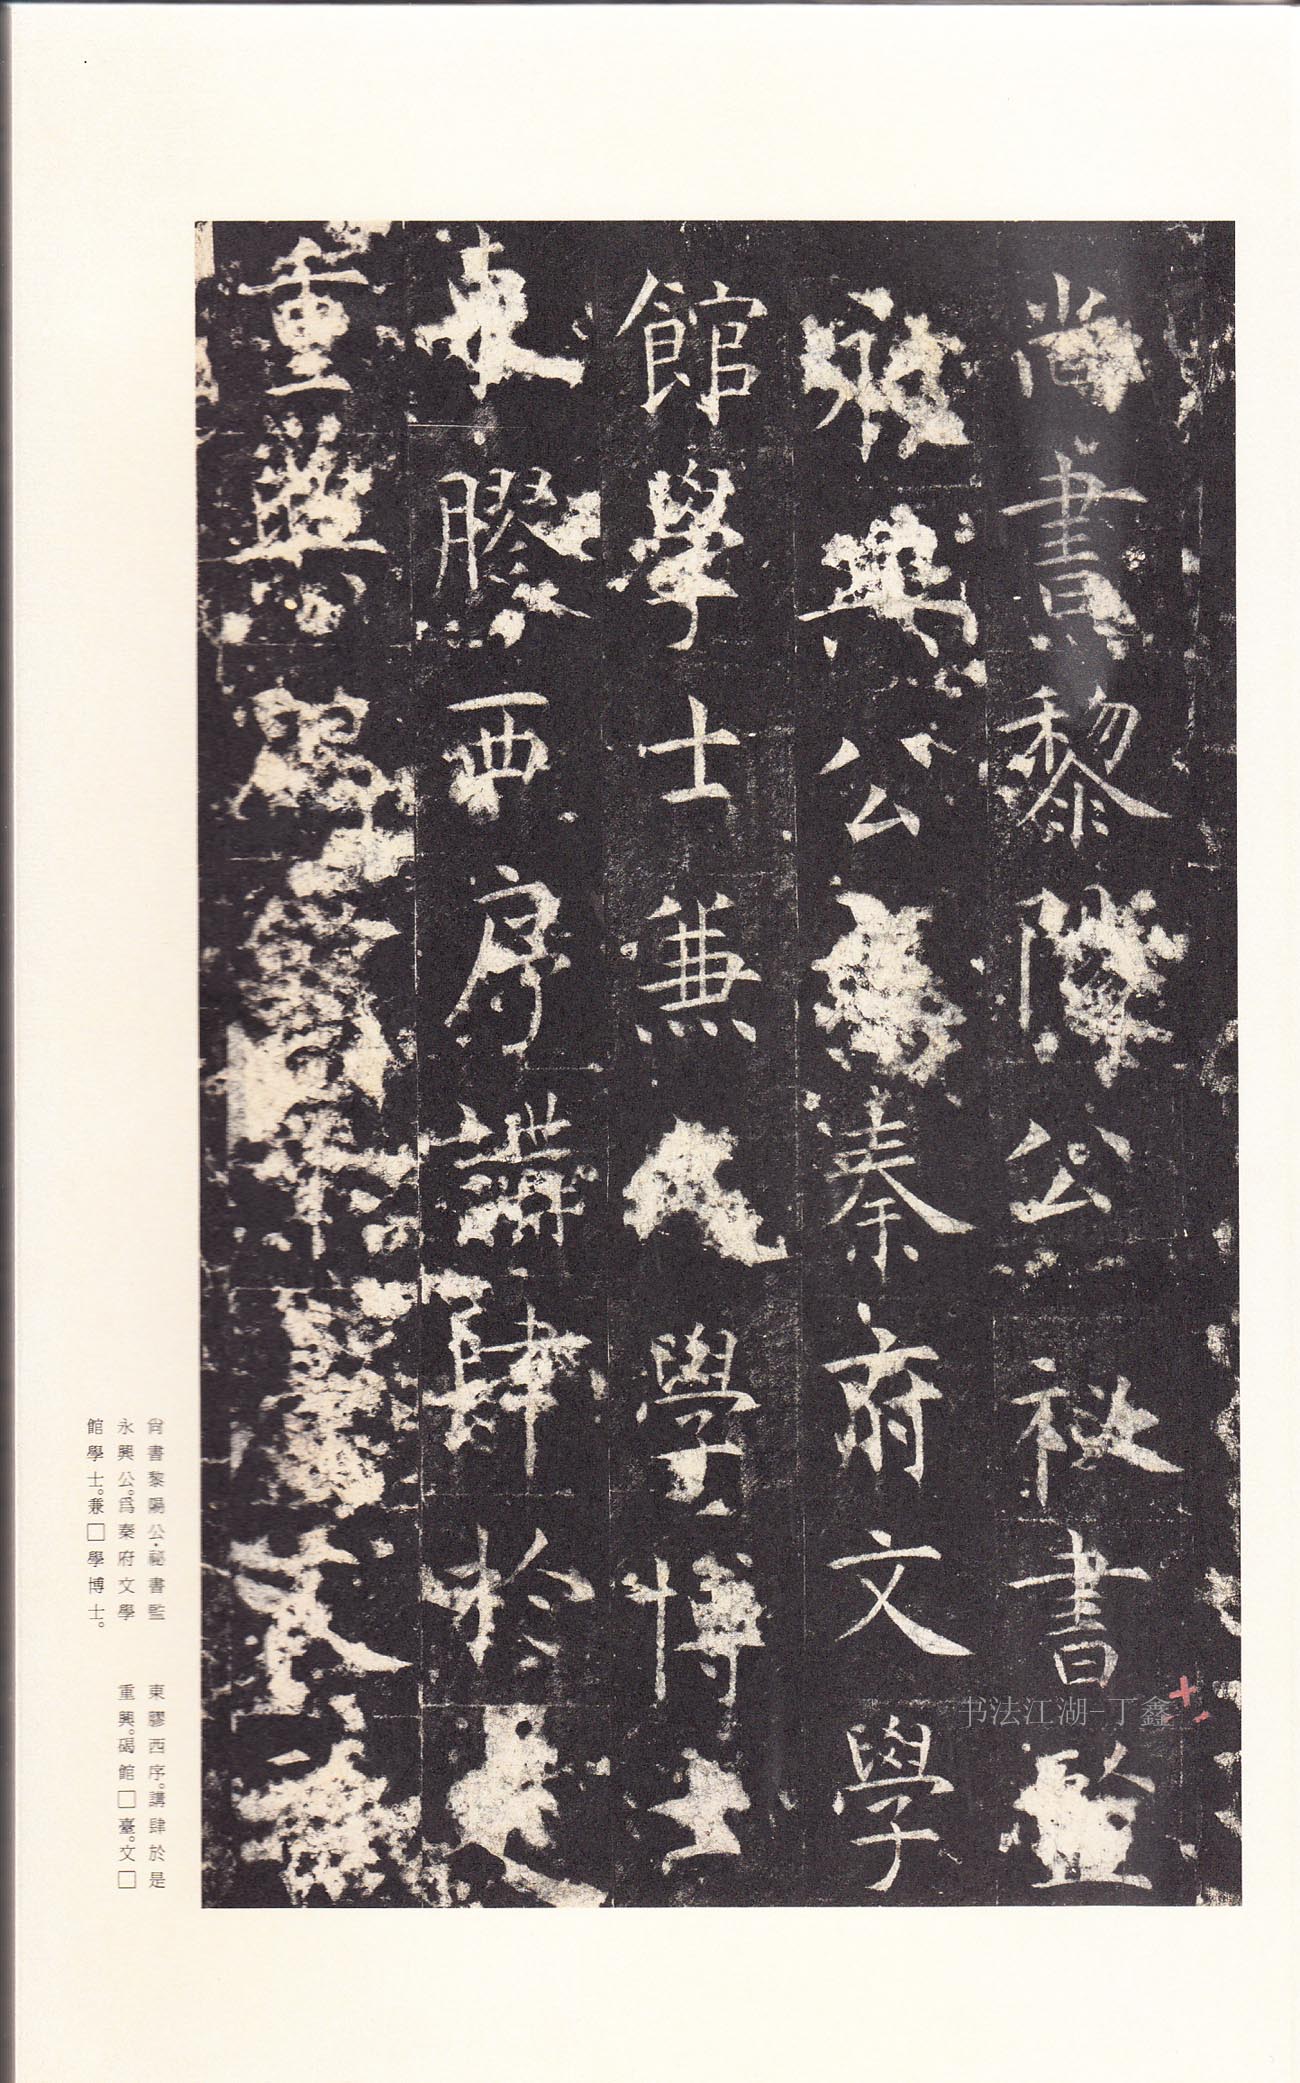 尚書黎陽公秘書監
永興公為秦府文學
館學士兼學博士
東膠西序講肆於是
重興碣館臺文
书法江湖-丁鑫
尙書黎陽公·祕書監
永興公。爲秦府文學
館學士。兼□學博士。
東膠西序。講肆於是
重興。碣館□臺。文□